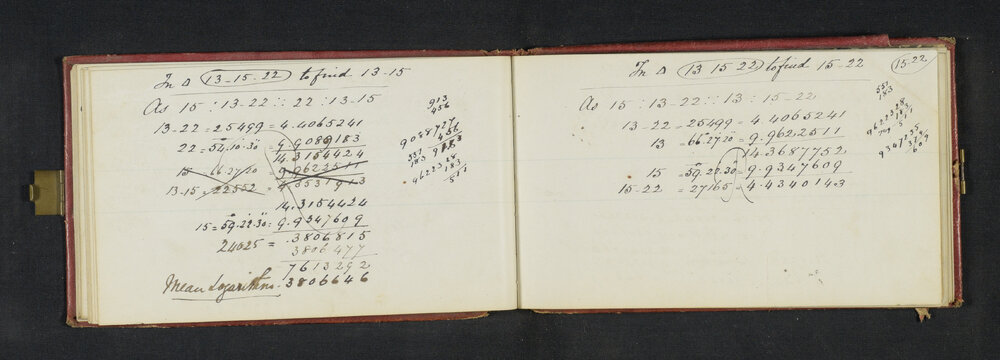 In Δ 13-15-22 to find 13-15
As 15 : 13-22 :: 22 : 13-15
13-22 = 25499 = 4.4065241
22 = 54.10.30 = 9.9089183
14.3154424
15 = 66.27.20 = 9.9622511
13-15 = 22552 = 4.3531913
14.3154424
15 = 59.22.30 : 9.9347609
24025 = .3806815
3806477
7613292
Mean Logarithm .3806646
913
456
9088727
456
9183
In Δ 13 15 22 to find 15-22
15-22
As 15 : 13-22 :: 13 : 15-22
13-22 = 25499 = 4.4065241
13 = 66.27.20 = 9.9622511
14.3687752
15 = 59.22.30 = 9.9347609
15-22 = 27165 = 4.4340143
551
183
9622328
183
9347235
374
609